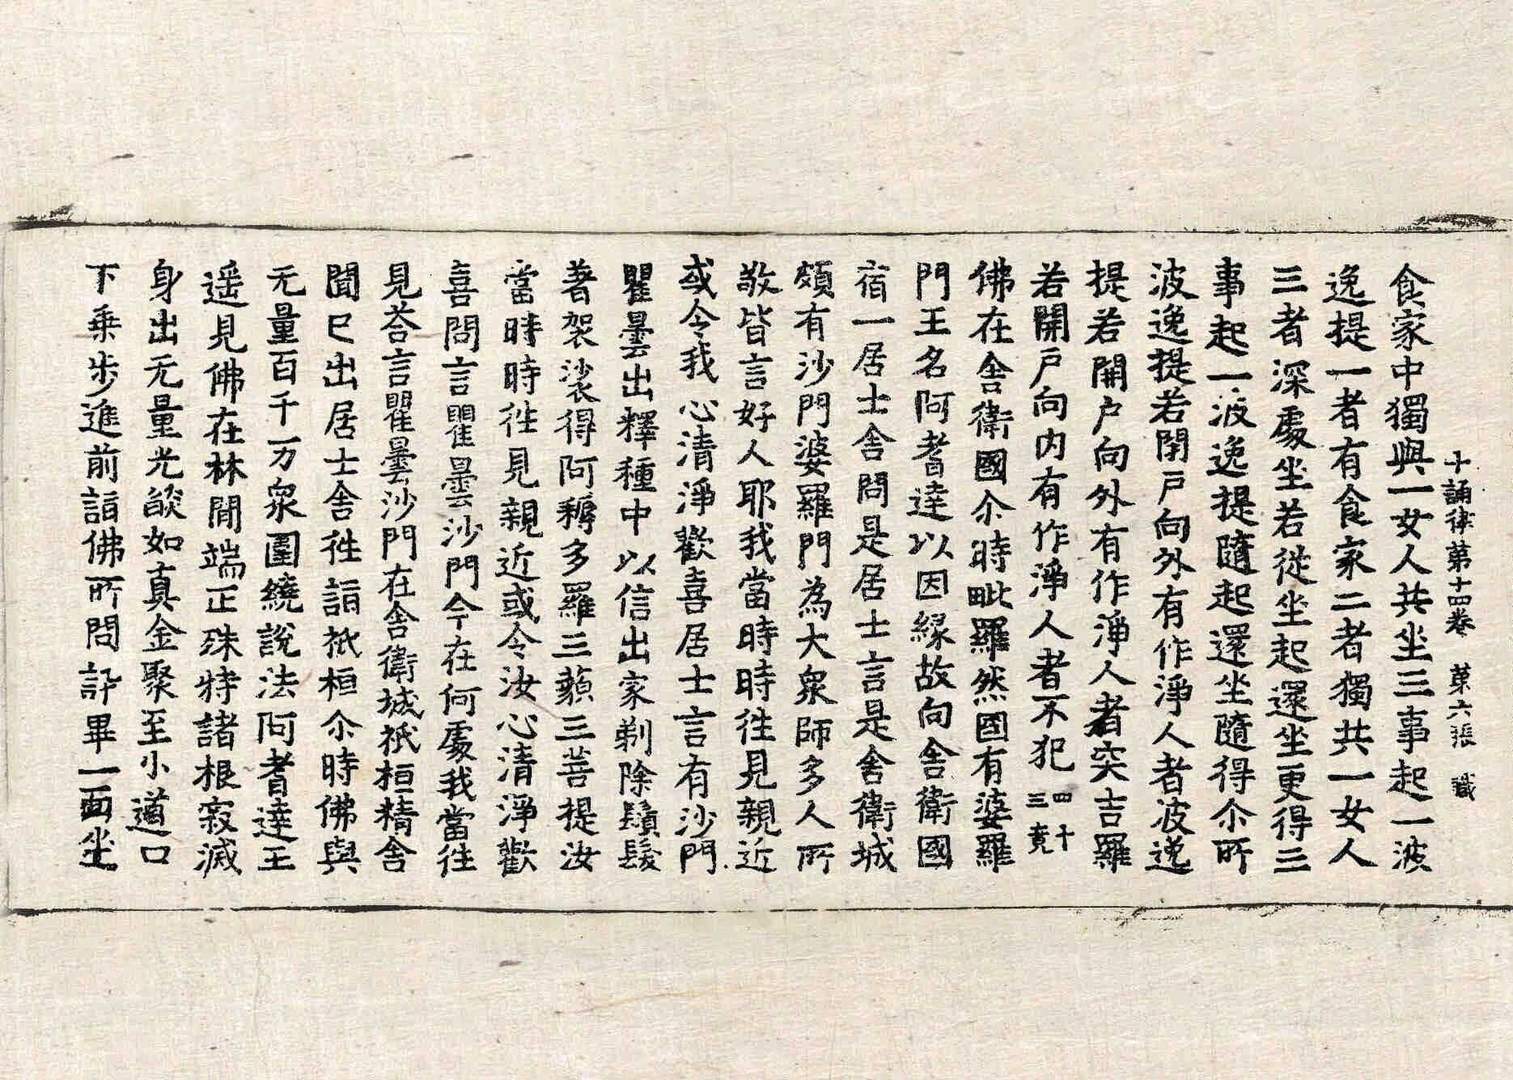 十誦律苐十四卷 苐六張 職
食家中獨與一女人共坐三事起一波
逸提一者有食家二者獨共一女人
三者深處坐若從坐起還坐更得三
事起一波逸提隨起還坐隨得尒所
波逸提若閇戸向外有作淨人者波逸
提若開戸向外有作淨人者突吉羅
若開戸向内有作淨人者不犯四十三竟
佛在舍衛國尒時毗羅然國有婆羅
門王名阿耆達以因緣故向舍衛國
宿一居士舍問是居士言是舍衛城
頗有沙門婆羅門為大衆師多人所
敬皆言好人耶我當時時徃見親近
或令我心清淨歡喜居士言有沙門
瞿曇出釋種中以信出家剃除鬚髮
著袈裟得阿耨多羅三藐三菩提汝
當時時徃見親近或令汝心清淨歡
喜問言瞿曇沙門今在何處我當徃
見荅言瞿曇沙門在舍衛城祇桓精舍
聞已出居士舍徃詣祇桓尒時佛與
无量百千万衆圍繞說法阿耆達王
遥見佛在林間端正殊特諸根寂滅
身出无量光燄如真金聚至小道口
下乗步進前詣佛所問訊畢一面坐